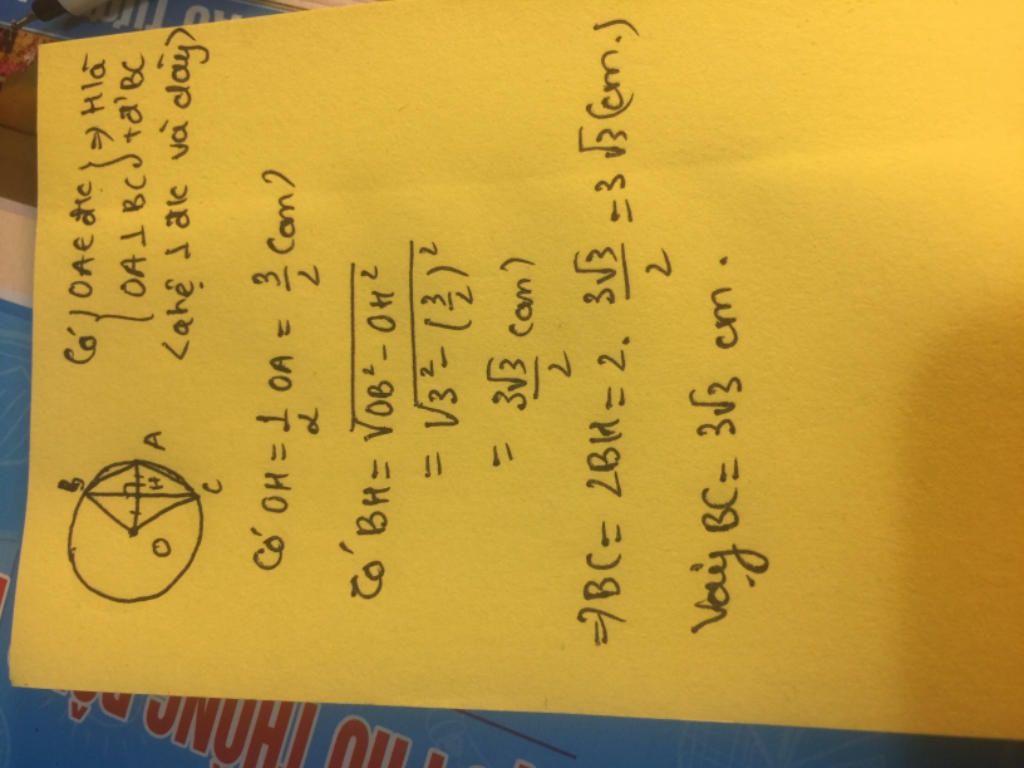 B
O
H
A
C
Có { OA ∈ đk } => H là
OA ⊥ BC } t/đ' BC
<qhệ ⊥ đk và dây>
Có OH = 1/2 OA = 3/2 (cm)
Có BH = √(OB² - OH²)
= √(3² - (3/2)²)
= 3√3/2 (cm)
=> BC = 2BH = 2. 3√3/2 = 3√3 (cm.)
Vậy BC = 3√3 cm.
THÔNG